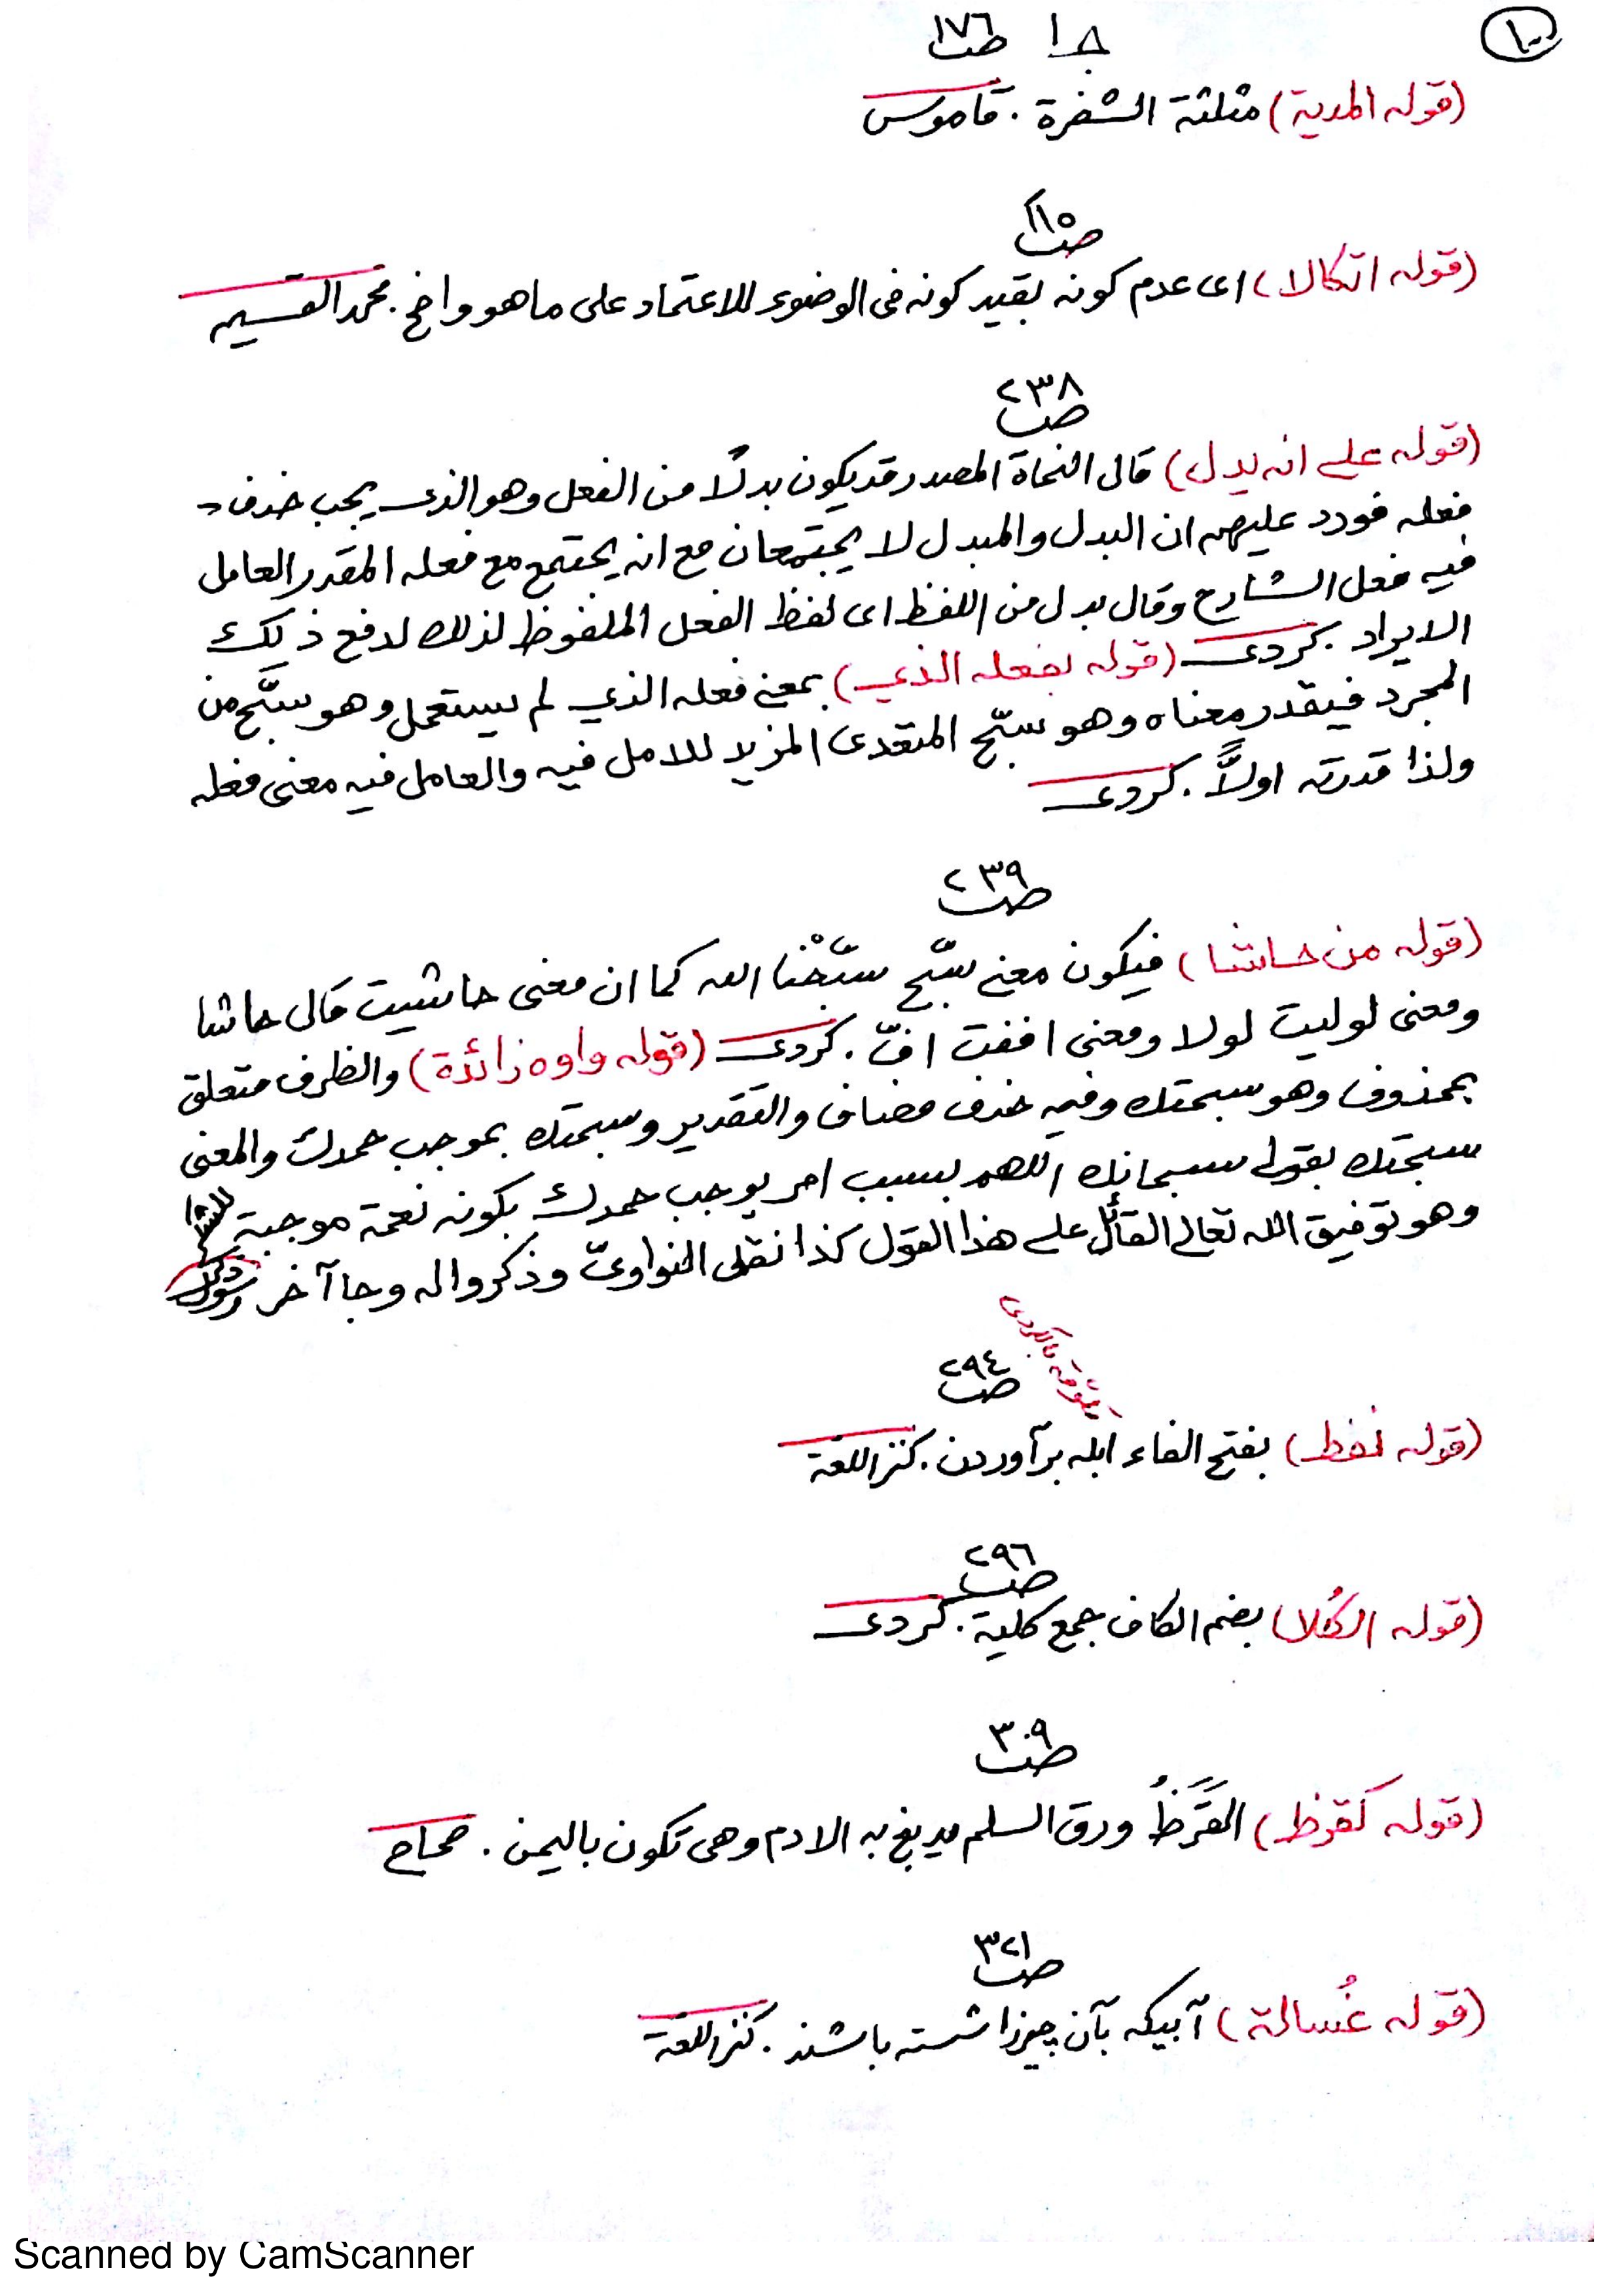 ١٠
جـ١ صـ ١٧٦
(قوله المدية) مثلثة الشفرة . قاموس
صـ
(قوله اتكالا) اى عدم كونه بقيد كونه فى الوضوء للاعتماد على ما هو واضح . محمد القسيم
صـ ٢٣٨
(قوله على انه بدل) قال النحاة المصدر قد يكون بدلًا من الفعل وهو الذى يجب حذف
فعله فورد عليهم ان البدل والمبدل لا يجتمعان مع انه يجتمع مع فعله المقدر العامل
فيه فعل الشارح وقال بدل من اللفظ اى لفظ الفعل الملفوظ لذلك لدفع ذلك
الايراد . كردى (قوله بفعله الذي) بمعنى فعله الذي لم يستعمل وهو سبّح من
المجرد فيقدر معناه وهو سبّح المتعدى المزيد للامل فيه والعامل فيه معنى فعله
ولذا قدرته اولًا . كردى
صـ ٢٣٩
(قوله من حاشا) فيكون معنى سبّح سبّحْنا الله كما ان معنى حاشيت قال حاشا
ومعنى لوليت لولا ومعنى اففت افّ . كردى (قوله واوه زائدة) والظرف متعلق
بمحذوف وهو سبحتك وفيه حذف مضاف والتقدير وسبحتك بموجب حمدك والمعنى
سبحتك بقول سبحانك اللهم بسبب امر يوجب حمدك بكونه نعمة موجبة للثنا
وهو توفيق الله تعالى القائل على هذا القول كذا نقل النواوىّ وذكروا له وجا آخر
صـ ٢٩٤
(قوله نفط) بفتح الفاء ابله برآوردن . كنز اللغة
صـ ٢٩٦
(قوله الكُلا) بضم الكاف جمع كلية . كردى
صـ ٣٠٩
(قوله كقرظ) القَرَظُ ورق السلم يدبغ به الادم وهى تكون باليمن . صحاح
صـ ٣٢١
(قوله غُسالة) آبيكه بآن چيزرا شسته باشند . كنز اللغة
Scanned by CamScanner